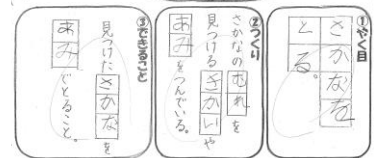 ①やく目
さかなを
とる。
②つくり
さかなのむれを
見つけるきかいや
あみをつんでいる。
③できること
見つけたさかなを
あみでとること。